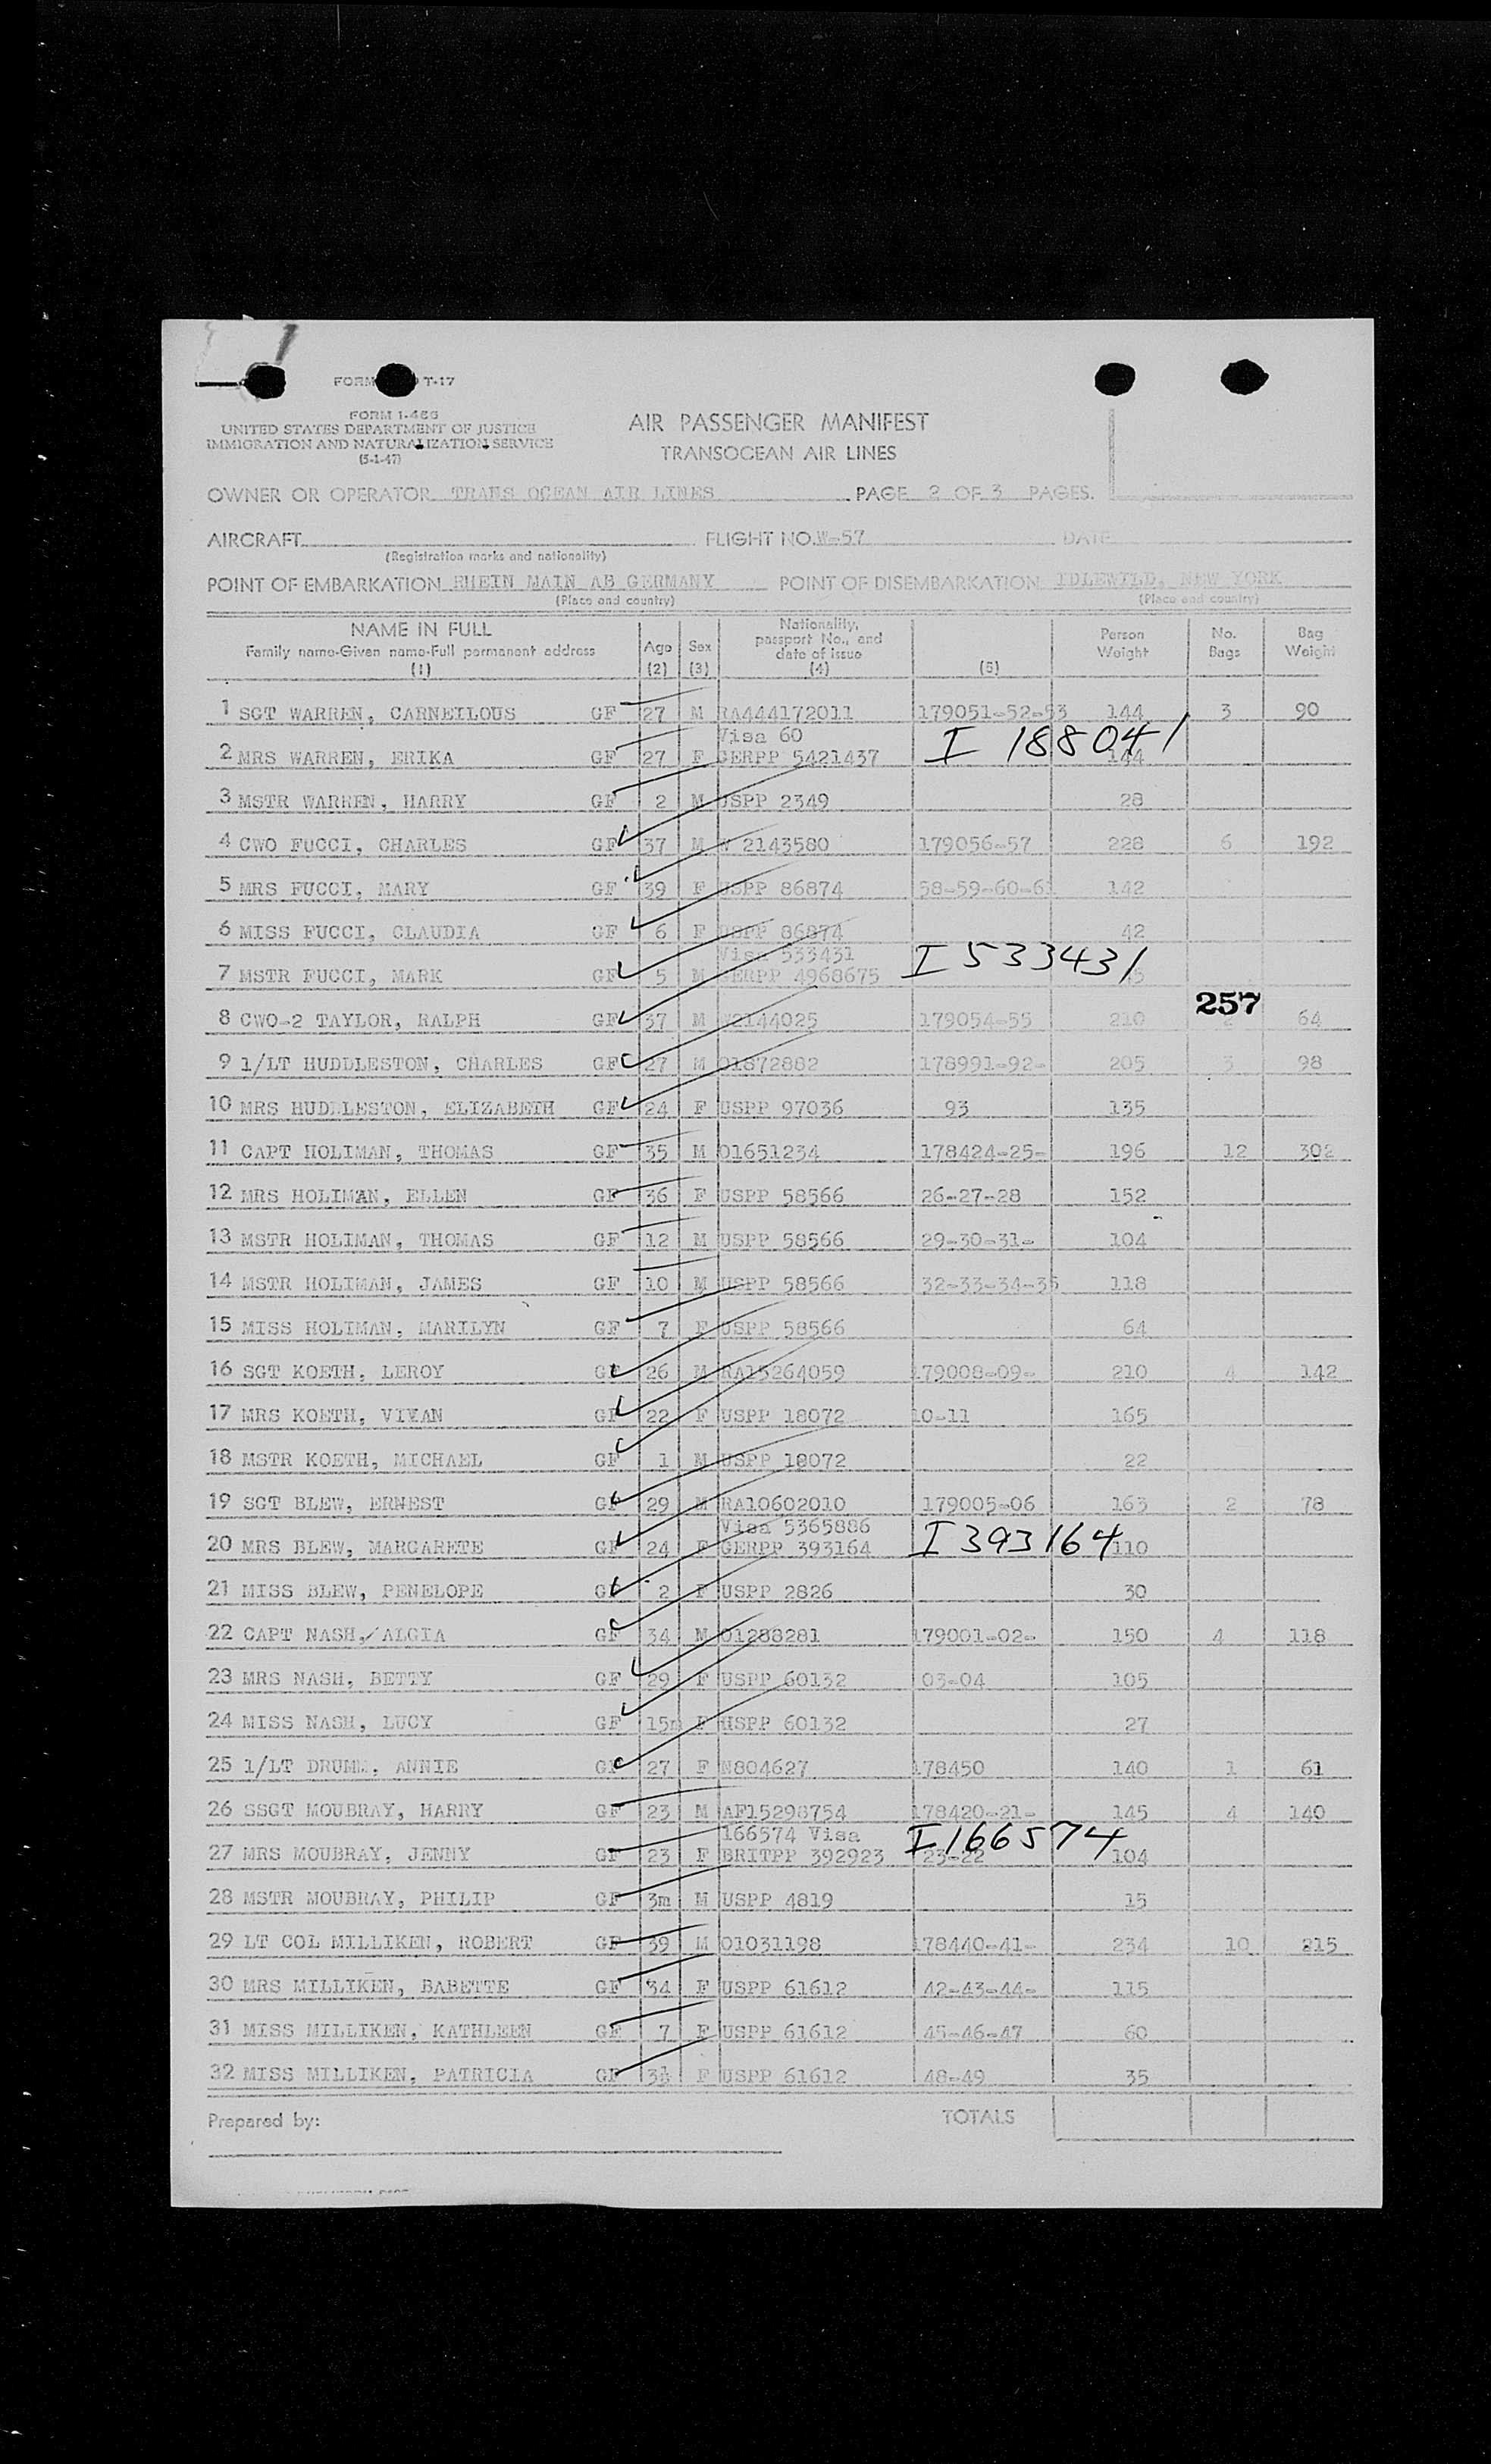 FORM T-17
FORM I-466
UNITED STATES DEPARTMENT OF JUSTICE
IMMIGRATION AND NATURALIZATION SERVICE
(5-1-47)
AIR PASSENGER MANIFEST
TRANSOCEAN AIR LINES
OWNER OR OPERATOR TRANS OCEAN AIR LINES PAGE 2 OF 3 PAGES.
AIRCRAFT FLIGHT NO. W-57 DATE
(Registration marks and nationality)
POINT OF EMBARKATION RHEIN MAIN AB GERMANY POINT OF DISEMBARKATION IDLEWILD, NEW YORK
(Place and country) (Place and country)
NAME IN FULL Age Sex Nationality, passport No., and date of issue Person Weight No. Bags Bag Weight
Family name-Given name-Full permanent address
(1) (2) (3) (4) (5)
1 SGT WARREN, CARNEILOUS GF 27 M RA444172011 179051-52-53 144 3 90
Visa 60 I 188041
2 MRS WARREN, ERIKA GF 27 F GERPP 5421437 144
3 MSTR WARREN, HARRY GF 2 M USPP 2349 28
4 CWO FUCCI, CHARLES GF 37 M W 2143580 179056-57 228 6 192
5 MRS FUCCI, MARY GF 39 F USPP 86874 58-59-60-61 142
6 MISS FUCCI, CLAUDIA GF 6 F USPP 86874 42
Visa 533431 I 533431
7 MSTR FUCCI, MARK GF 5 M GERPP 4968675
257
8 CWO-2 TAYLOR, RALPH GF 37 M W2144025 179054-55 210 2 64
9 1/LT HUDDLESTON, CHARLES GF 27 M O1872882 178991-92- 205 3 98
10 MRS HUDDLESTON, ELIZABETH GF 24 F USPP 97036 93 135
11 CAPT HOLIMAN, THOMAS GF 35 M O1651234 178424-25- 196 12 302
12 MRS HOLIMAN, ELLEN GF 36 F USPP 58566 26-27-28 152
13 MSTR HOLIMAN, THOMAS GF 12 M USPP 58566 29-30-31- 104
14 MSTR HOLIMAN, JAMES GF 10 M USPP 58566 32-33-34-35 118
15 MISS HOLIMAN, MARILYN GF 7 F USPP 58566 64
16 SGT KOETH, LEROY GF 26 M RA15264059 179008-09- 210 4 142
17 MRS KOETH, VIVAN GF 22 F USPP 18072 10-11 165
18 MSTR KOETH, MICHAEL GF 1 M USPP 18072 22
19 SGT BLEW, ERNEST GF 29 M RA10602010 179005-06 163 2 78
Visa 5365886 I 393164
20 MRS BLEW, MARGARETE GF 24 F GERPP 393164 110
21 MISS BLEW, PENELOPE GF 2 F USPP 2826 30
22 CAPT NASH, ALGIA GF 34 M O1288281 179001-02- 150 4 118
23 MRS NASH, BETTY GF 29 F USPP 60132 03-04 105
24 MISS NASH, LUCY GF 15m F USPP 60132 27
25 1/LT DRUMM, ANNIE GF 27 F N804627 178450 140 1 61
26 SSGT MOUBRAY, HARRY GF 23 M AF15298754 178420-21- 145 4 140
166574 Visa I 166574
27 MRS MOUBRAY, JENNY GF 23 F BRITPP 392923 23-22 104
28 MSTR MOUBRAY, PHILIP GF 3m M USPP 4819 15
29 LT COL MILLIKEN, ROBERT GF 39 M O1031198 178440-41- 234 10 215
30 MRS MILLIKEN, BABETTE GF 34 F USPP 61612 42-43-44- 115
31 MISS MILLIKEN, KATHLEEN GF 7 F USPP 61612 45-46-47 60
32 MISS MILLIKEN, PATRICIA GF 3½ F USPP 61612 48-49 35
Prepared by: TOTALS